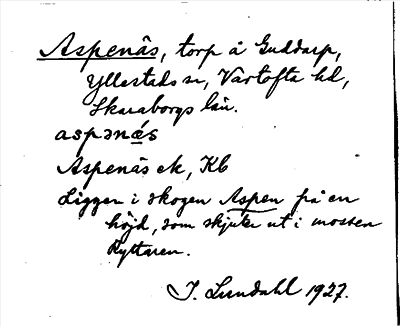 Aspenäs, torp å Guddarp,
Yllestads sn, Vartofta hd,
Skaraborgs län.
aspənǝ́s
Aspenäs ek, Kb
Ligger i skogen Aspen på en
höjd, som skjuter ut i mossen
Ryttaren.
I. Lundahl 1927.